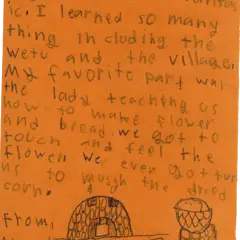 ic. I learned so many
thing in cluding the
wetu and the village.
My favorite part was
the lady teaching us
how to make flower
and bread. we got to
touch and feel the
flower. we even got
us to the dried
corn.
From,